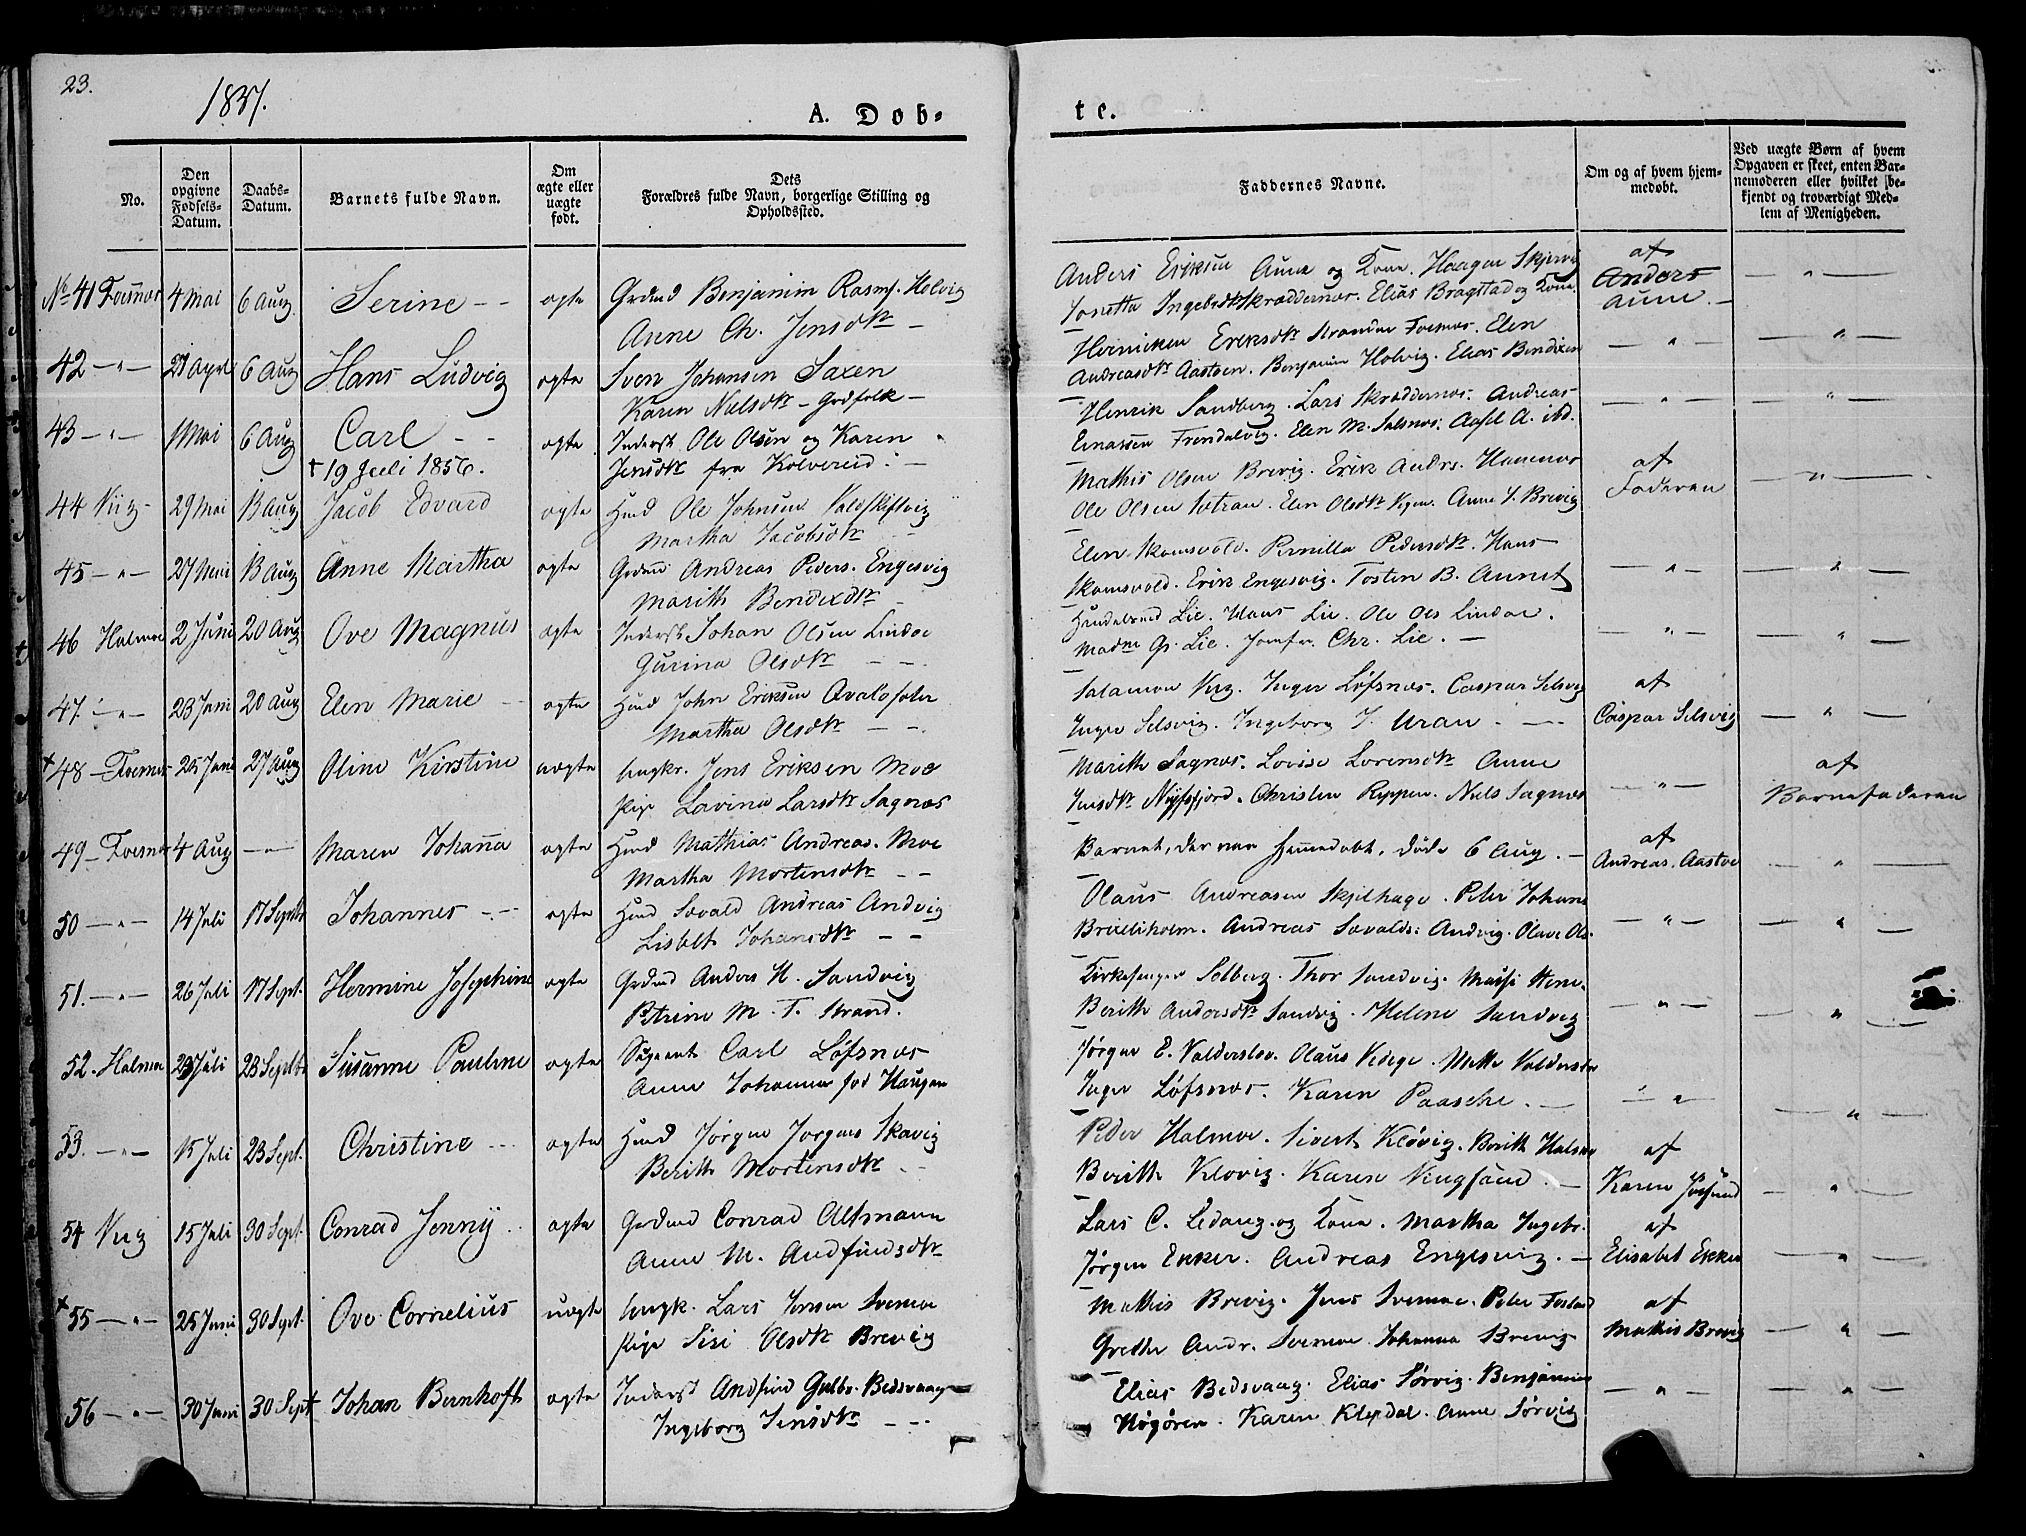 23.
1837.
A. Døb-
te.
No.
Den opgivne Fødsels-Datum.
Daabs-Datum.
Barnets fulde Navn.
Om ægte eller uægte født.
Dets
Forældres fulde Navn, borgerlige Stilling og
Opholdssted.
Faddernes Navne.
Om og af hvem hjem-
medøbt.
Ved uægte Børn af hvem
Opgaven er skeet, enten Bar-
nemoderen eller hvilket be-
kjendt og troværdigt Med-
lem af Menigheden.
No 41 Foesnæs 4 Mai 6 Aug Serine - - ægte Grdmd Benjamin Rasms. Holvig
Anne Ch. Jensdtr -
Anders Eriksen Aune og Kone. Haagen Skjervig
Jonetta Ingebrdtr Skræddernæs. Elias Bragstad og Kone.
af
Anders
Aune. -
42 - " - 21 Apr 6 Aug Hans Ludvig ægte Sven Johansen Saxen
Karen Nielsdtr - Grdfolk -
Heinicken Eriksdtr Strander Foesnæs. Elen
Andreasdtr Aastoen. Benjamin Holvig. Elias Bendixen
43 - " - 1 Mai 6 Aug Carl - - ægte Inderst Ole Olsen og Karen
† 19 Juli 1856.
Jensdtr fra Kolvereid. -
Henrik Sandberg. Lars Skræddernæs. Andreas
Frendalvig. Elen M. Salsnæs. A. ibd.
44 Viig - 29 Mai 13 Aug Jacob Edvard ægte Hmd Ole Johnsen Kaldkleftvig
Martha Jacobsdtr
Mathis Olsen Brevig. Erik Andrs. Hammer
Ole Olsen Setran. Elen Olsdtr. Anne J. Brevig
af
Faderen
45 - " - 27 Mai 13 Aug Anne Martha ægte Grdmd Andreas Peders. Engesvig
Marith Bendixdtr -
Elen Skomsvold. Pernilla Pedersdtr. Hans
Skomsvold. Erik Engesvig. Tosten B. Aunet
46 Halmøe 2 Juni 20 Aug Ove Magnus ægte Inderst Johan Olsen Lindøe
Gurina Olsdtr - -
Handelsmd Lie. Hans Lie. Ole Ols Lindøe.
Madme G. Lie. Jomfr. Chr. Lie. -
47 - " - 23 Juni 20 Aug Elen Marie - ægte Hmd John Eriksen Qvaløseter
Martha Olsdtr - -
Salamon Viig. Inger Løfsnæs. Caspar Selsvig
Inger Selsvig. Ingeborg J. Uran. -
af
Caspar Selsvig
+ 48 - Foesnæs 25 Juni 27 Aug Oline Kirstine uægte Ungkr. Jens Eriksen Moe
Pige Lavina Larsdtr Sagnæs
Marith Sagnæs. Lovise Lorensdtr Anne
Jensdtr. Christen Reppen. Niels Sagnæs
af
Barnefaderen
49 - Foesnæs 4 Aug - " - Maren Johanna ægte Hmd Mathias Andreas. Moe
Martha Mortensdtr - -
Barnet, der var Hjemmedøbt, døde 6 Aug. -
af
Andreas. Aastoe
50 - " - 14 Juli 17 Septbr Johannes - - ægte Hmd Sevald Andreas Andvig
Lisbet Johansdtr - -
Olaus Andreasen Skjelhage. Peter Johans
Andreas Sevalds: Andvig. Olave Ols.
51. - " - 26 Juli 17 Sept. Hermine Josephine ægte Grdmd Anders H. Sandvig
Petrine M. T. Strand.
Kirkesanger Solberg. Thor Sandvig.
Berith Andersdtr Sandvig. Helene Sandvig
52. Halmøe 23 Juli 23 Septbr Susanne Pauline ægte Sergeant Carl Løfsnæs
Anne Johanna fød Haugan
Jørgen E. Valdersløv. Olaus. Mette Valdersløv
Inger Løfsnæs. Karen Paasche. -
53. - " - 15 Juli 23 Sept. Christine - - ægte Hmd Jørgen Jørgens Skavig
Berith Mortensdtr - -
Peder Halmøe. Sivert Kløvig. Berith Halmøe
Berith Kløvig. Karen -
af
Karen
54 Viig 15 Juli 30 Sept. Conrad Jenny ægte Grdmd Conrad Altmann
Anne M. Andfindsdtr
Lars C. Ledang og Kone. Martha Ingebr.
Jørgen Ekker. Andreas Engesvig. -
af
Elisabet Ekker
+ 55 - " - 25 Juni 30 Sept. Ove Cornelius uægte Ungk. Lars Jensen Svemoe
Pige Sisi Olsdtr Brevig
Mathis Brevig. Jens Svemoe. Peter Fosland
Grethe Andr. Svemoe. Johanna Brevig
af
Mathis Brevig
56 - " - 30 Juni 30 Sept Johan Bernhoft ægte Inderst Andfind Gulbr. Bedsvaag
Ingeborg Jensdtr - -
Elias Bedsvaag. Elias Sørvig. Benjamin
Høgøren. Karen Klepdal. Anne Sørvig